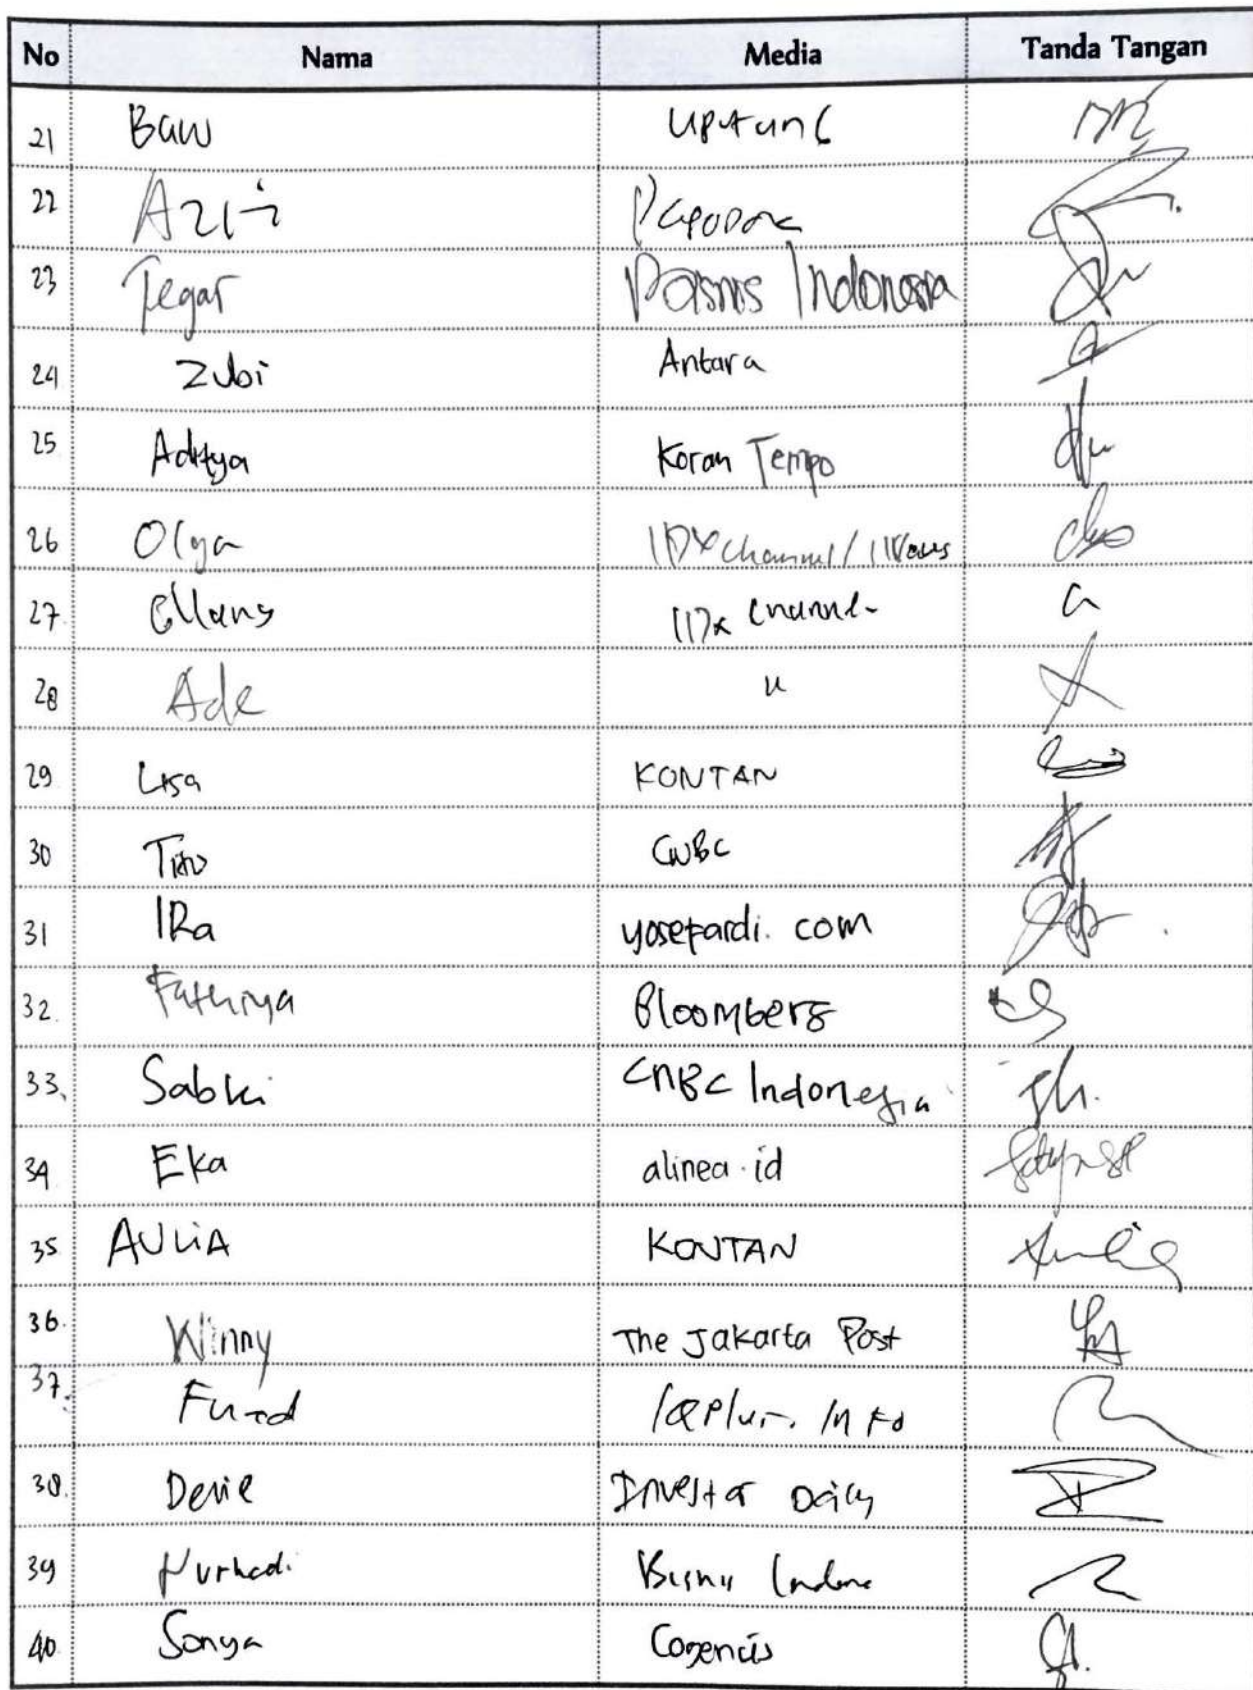 No Nama Media Tanda Tangan
21 Baw
22 Azi
23 Tegar Bisnis Indonesia
24 Zubi Antara
25 Aditya Koran Tempo
26 Olya IDX Channel /
27. IDX Channel
28 Ade "
29 Lisa KONTAN
30 Tito CNBC
31 IRa yosefardi. com
32. Fathiya Bloomberg
33. Sabki CNBC Indonesia
34 Eka alinea.id
35 AULIA KONTAN
36. Winny The Jakarta Post
37. Fuad
38. Devie Investor Daily
39 Nurhadi Bisnis
40. Sonya Cogencis